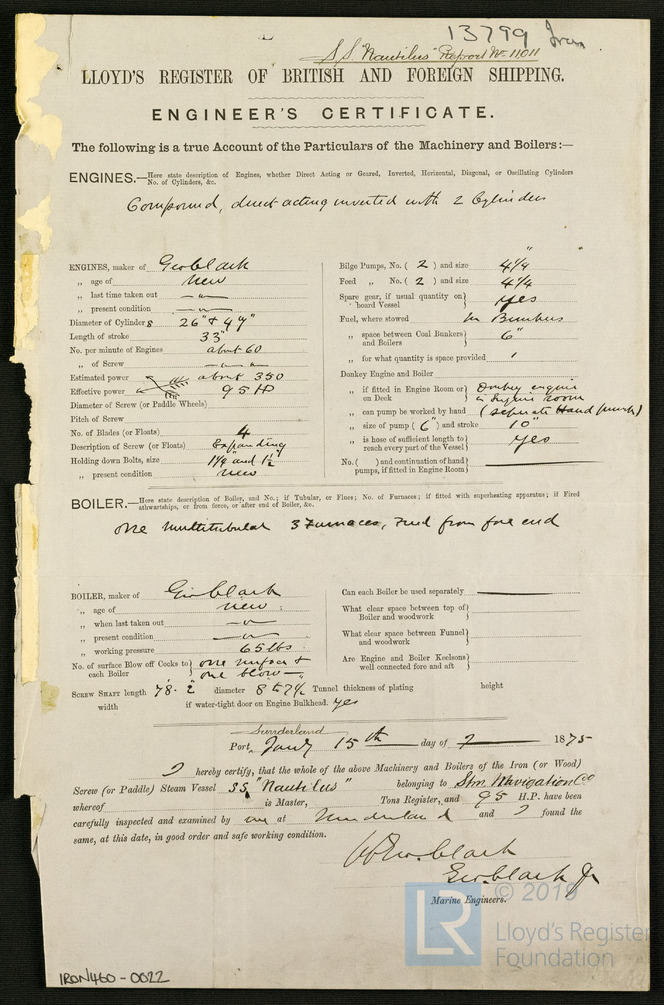 13799 Iron
S.S. "Nautilus" Report No 11011
LLOYD'S REGISTER OF BRITISH AND FOREIGN SHIPPING.
ENGINEER'S CERTIFICATE.
The following is a true Account of the Particulars of the Machinery and Boilers:—
ENGINES.—Here state description of Engines, whether Direct Acting or Geared, Inverted, Horizontal, Diagonal, or Oscillating Cylinders
No. of Cylinders, &c.
Compound, direct acting inverted with 2 Cylinders
ENGINES, maker of Geo Clark
„ age of New
„ last time taken out — „ —
„ present condition — „ —
Diameter of Cylinders 26" & 49"
Length of stroke 33"
No. per minute of Engines about 60
„ of Screw — „ — „
Estimated power about 350
Effective power 95 HP
Diameter of Screw (or Paddle Wheels)
Pitch of Screw
No. of Blades (or Floats) 4
Description of Screw (or Floats) Expanding
Holding down Bolts, size 1¼" and 1½"
„ present condition new
Bilge Pumps, No. ( 2 ) and size 4¼"
Feed „ No. ( 2 ) and size 4¼
Spare gear, if usual quantity on board Vessel yes
Fuel, where stowed In Bunkers
„ space between Coal Bunkers and Boilers 6"
„ for what quantity is space provided
Donkey Engine and Boiler
„ if fitted in Engine Room or on Deck Donkey engine in Engine room
„ can pump be worked by hand (seperate Hand pump)
„ size of pump ( 6" ) and stroke 10"
„ is hose of sufficient length to reach every part of the Vessel yes
No. ( ) and continuation of hand pumps, if fitted in Engine Room
BOILER.—Here state description of Boiler, and No.; if Tubular, or Flues; No. of Furnaces; if fitted with superheating apparatus; if Fired
athwartships, or from force, or after end of Boiler, &c.
one multitubular 3 Furnaces, Fired from fore end
BOILER, maker of Geo Clark
„ age of new
„ when last taken out — „ —
„ present condition — „ —
„ working pressure 65 lbs
No. of surface Blow off Cocks to each Boiler one surface & one blow —
Can each Boiler be used separately
What clear space between top of Boiler and woodwork
What clear space between Funnel and woodwork
Are Engine and Boiler Keelsons well connected fore and aft
SCREW SHAFT length 78.2" diameter 8 to 7½ Tunnel thickness of plating height
width if water-tight door on Engine Bulkhead. yes
Sunderland
Port, Jany 15th day of 1875
I hereby certify, that the whole of the above Machinery and Boilers of the Iron (or Wood)
Screw (or Paddle) Steam Vessel SS "Nautilus" belonging to Stm Navigation Co
whereof is Master, Tons Register, and 95 H.P. have been
carefully inspected and examined by me at Sunderland and I found the
same, at this date, in good order and safe working condition.
Geo. Clark
Geo. Clark Jr
Marine Engineers.
© 2019
LR
Lloyd's Register
Foundation
IRON460-0022